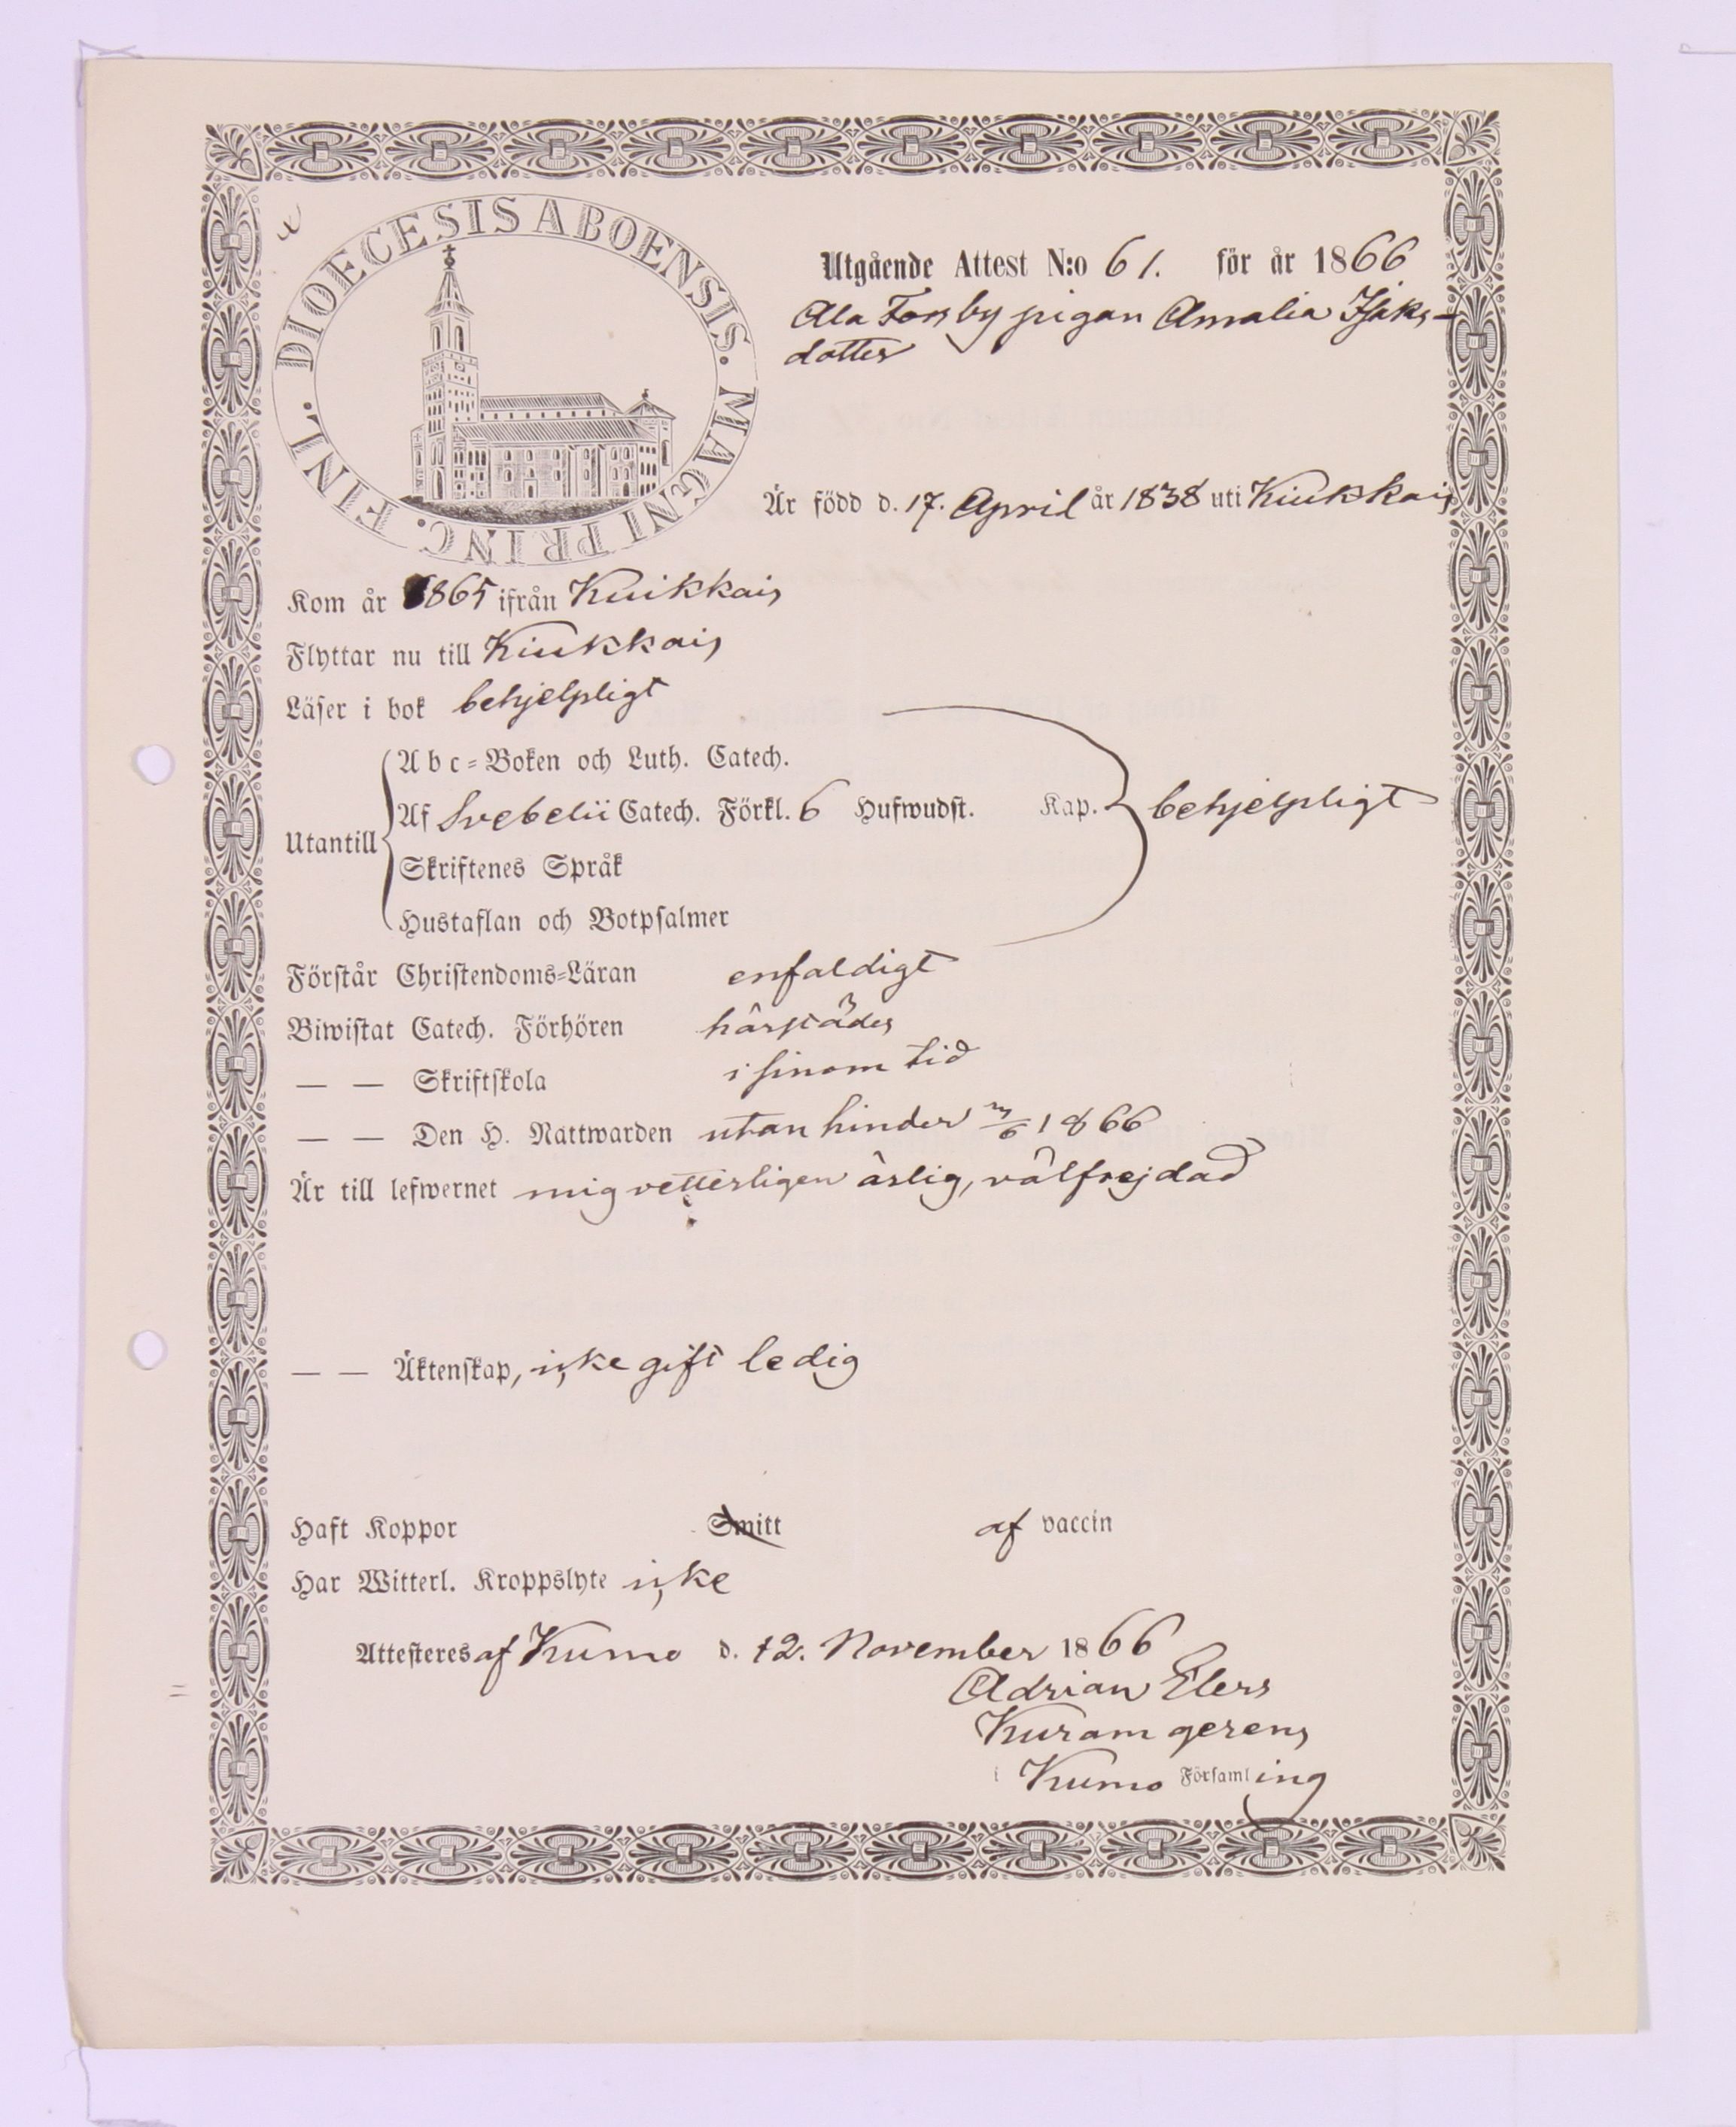 DIOECESIS ABOENSIS. MAGNI PRINC. FINL.
Utgående Attest N:o 61. för år 1866
Ala Forsby pigan Amalia Isaks-
dotter
Är född d. 17. April år 1838 uti Kiukkais
Kom år 1865 ifrån Kuikkais
Flyttar nu till Kiukkais
Läser i bok behjelpligt
Utantill
Abc-Boken och Luth. Catech.
Af Svebelii Catech. Förkl. 6 Hufwudst. Kap. behjelpligt
Skriftenes Språk
Hustaflan och Botpsalmer
Förstår Christendoms-Läran enfaldigt
Biwistat Catech. Förhören härstädes
— — Skriftskola i sinom tid
— — Den H. Nattwarden utan hinder /6 1866
Är till lefwernet mig vetterligen ärlig, välfrejdad
— — Äktenskap, icke gift ledig
Haft Koppor Smitt af vaccin
Har Witterl. Kroppslyte icke
Attesteres af Kumo d. 12. November 1866
Adrian Elers
Kuram gerens
i Kumo Församling